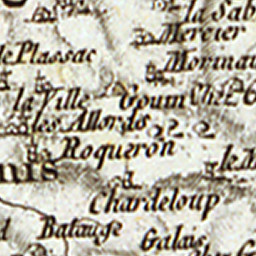 la Sab
Mercier
le Plassac
Morinau
la Ville
Goum
les Allords
Roqueron
nis
le M
Chardeloup
Batauge
Galais